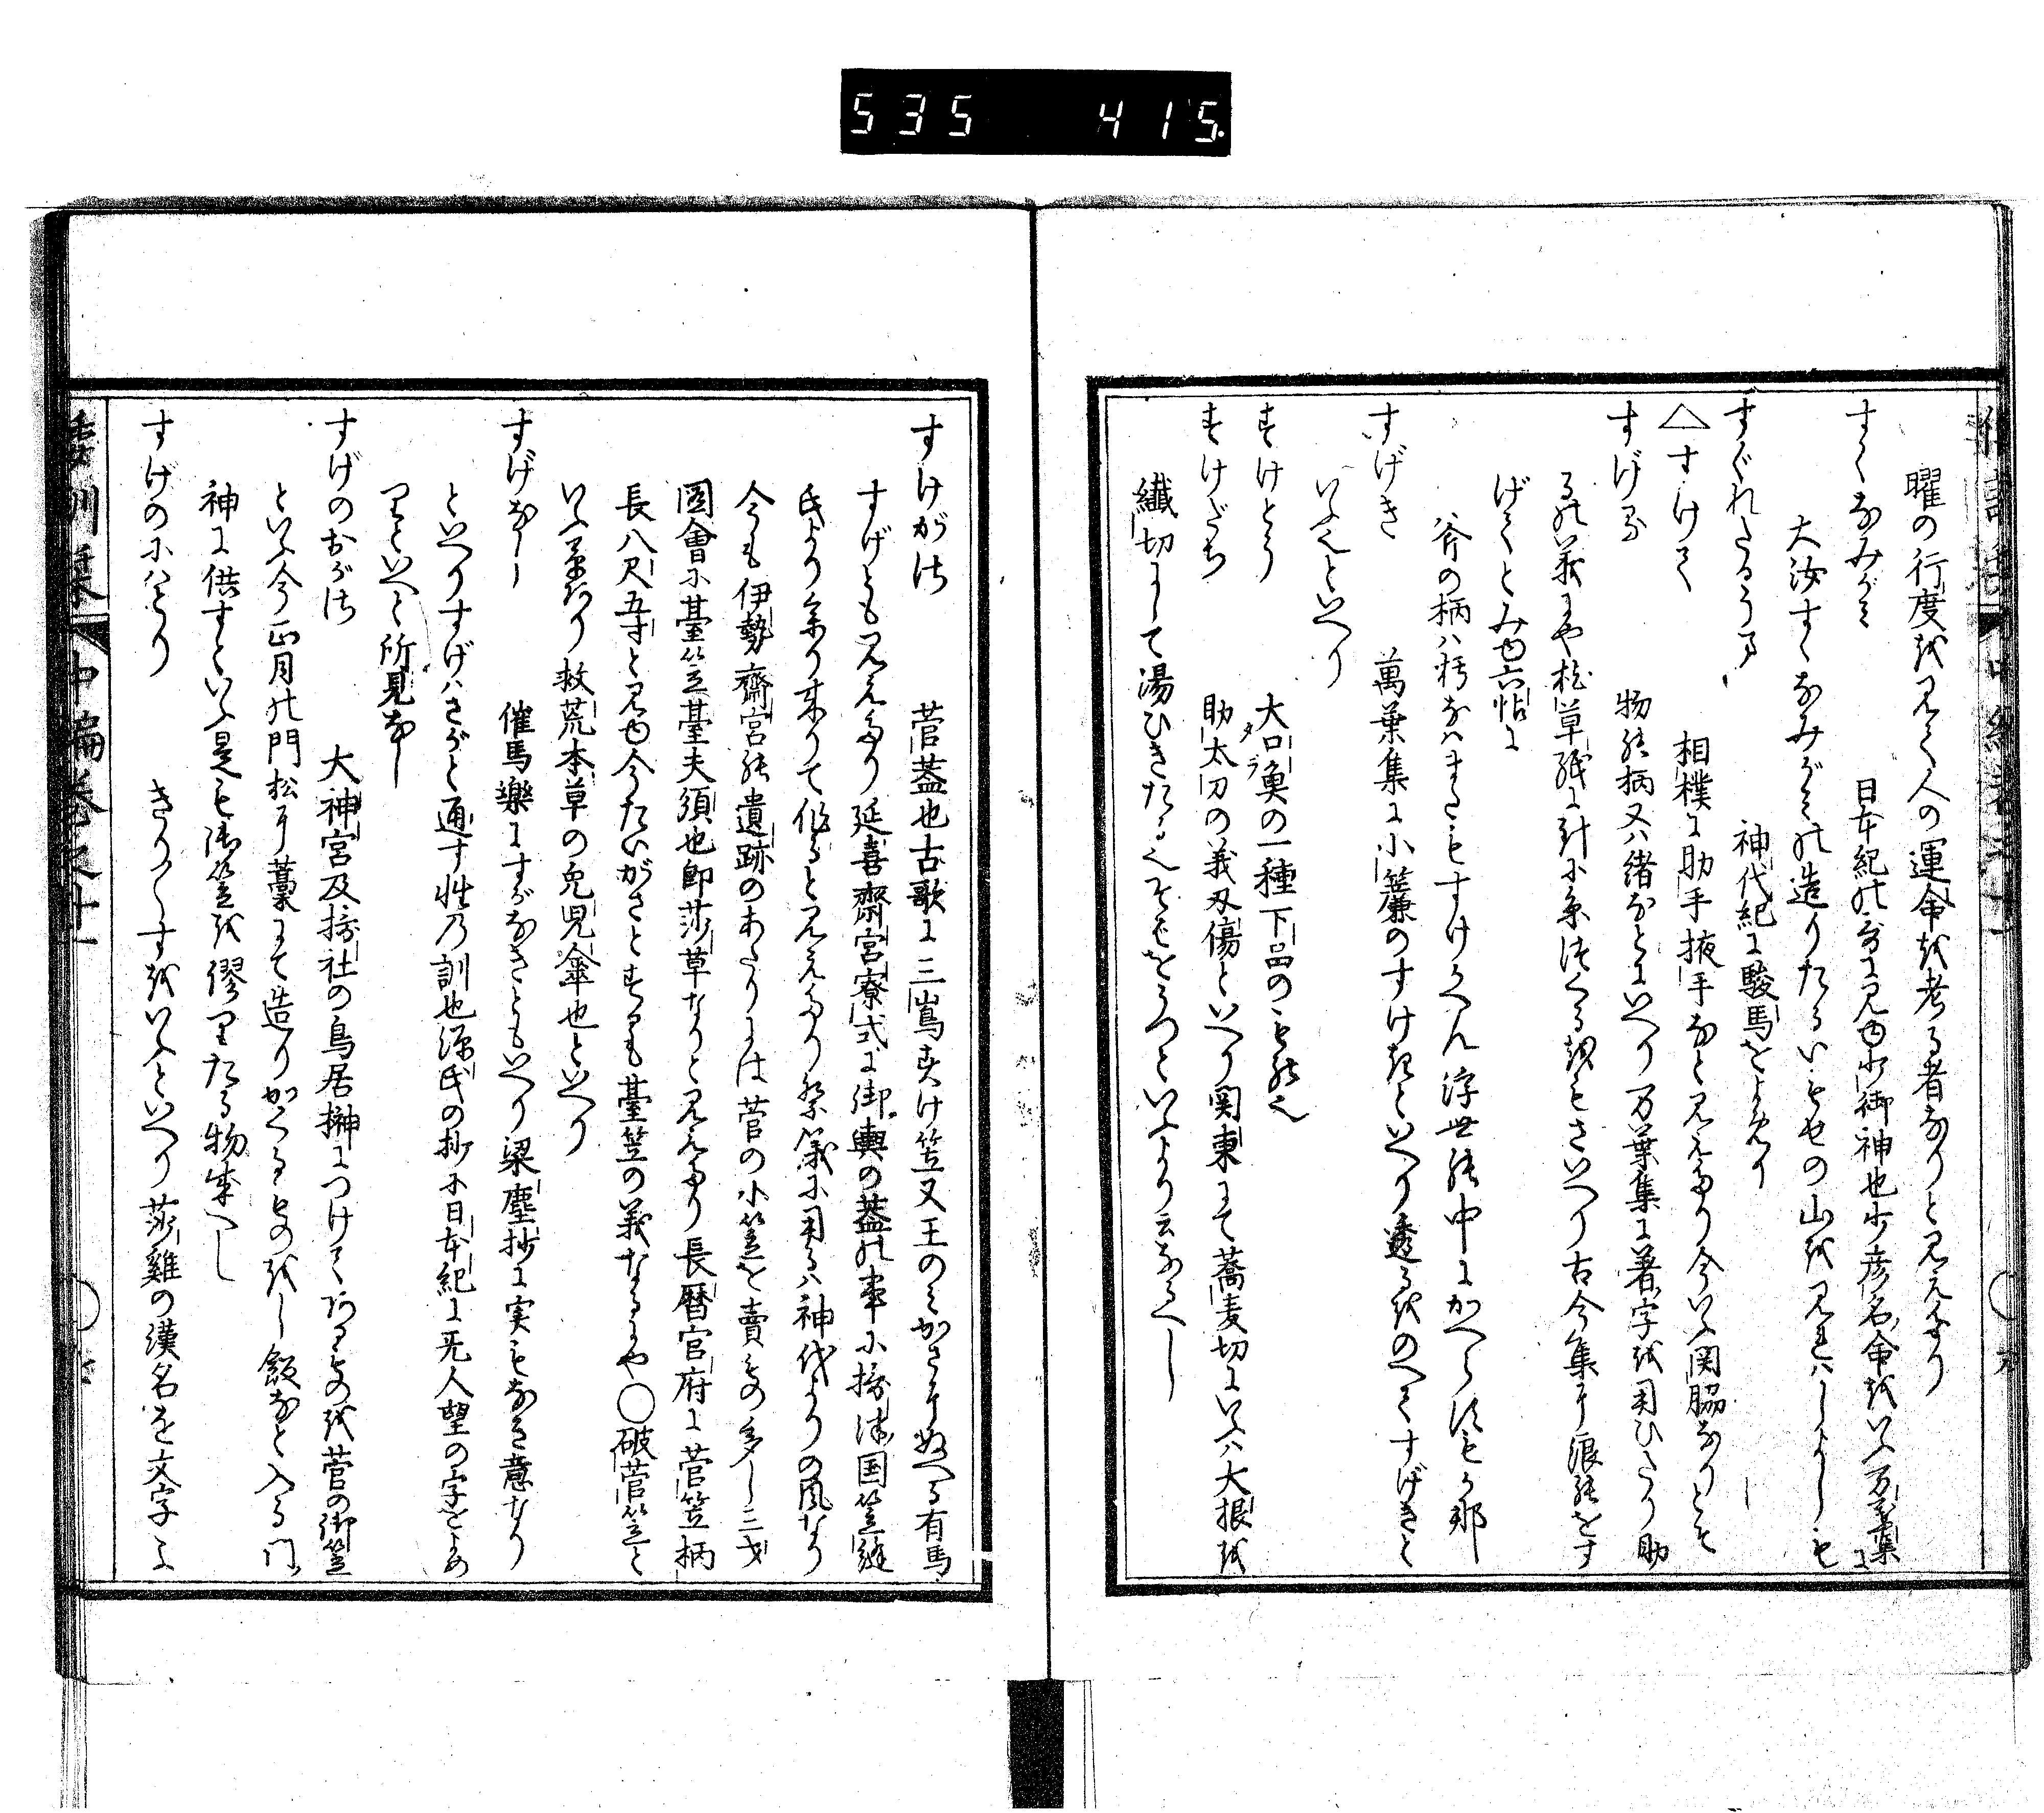 535 415
曜の行度を見て人の運命を考る者なりと見えたり
すくなみがみ 日本紀の哥に見ゆ少御神也少彦名命をいふ万葉集に
大汝すくなみがみの造りたるいもせの山を見れはしよしも
すぐれたるうま 神代紀に駿馬をよめり
△すけて 相樸に助手掖手なと見えたり今いふ関脇なりとそ
すげる 物の柄又は緒なとにいへり万葉集に著字を用ひたり助
るの義にや枕草紙に針に糸つくるをもさいへり古今集に浪のをす
げてとみゆ六帖に
斧の柄は朽なはまたもすけかへん浮世の中にかへらすもかな
すげき 萬葉集に小簾のすけきといへり透るをのへてすげきと
いふ也といへり
すけとう 大口魚の一種下品のもの也
タラ
すけだち 助太刀の義刄傷といへり関東にて蕎麦切にいふは大根を
繊切にして湯ひきたる也そばをうつといふより云なるへし
すけがさ 菅蓋也古歌に三嶌すけ笠又王のみかさにぬへる有馬
すげとも見えたり延喜齋宮寮式に御輿の蓋の事に摂津国笠縫
氏より参り来りて作ると見えたり祭儀に用るは神代よりの風なり
今も伊勢齋宮の遺跡のあたりには菅の小笠を賣もの多し三才
圖會に臺笠臺夫須也即莎草なりと見えたり長暦官府に菅笠柄
長八尺五寸と見ゆ今たいがさとするも臺笠の義なるにや○破菅笠と
いふ草あり救荒本草の兎児傘也といへり
すげなし 催馬樂にすがなきともいへり梁塵抄に実もなき意なり
といへりすげはさがと通す性乃訓也源氏の抄に日本紀に旡人望の字をよめ
りといへと所見なし
すげのおがさ 大神宮及摂社の鳥居榊につけてあるものを菅の御笠
といふ今正月の門松に藁にて造りかくるものをし飯なと入る門
神に供すといふ是も御笠を繆りたる物成へし
すげのにはとり きり〱すをいふといへり莎雞の漢名を文字よ
倭訓栞 中編巻之十一